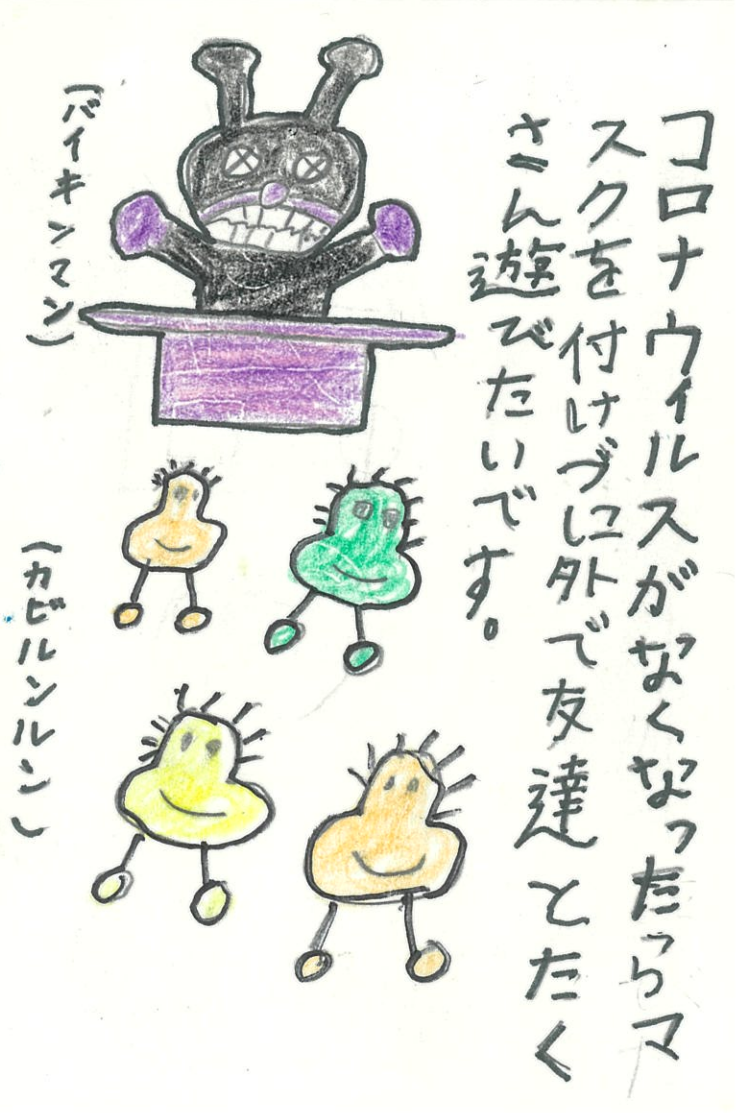 コロナウィルスがなくなったらマ
スクを付けづに外で友達とたく
さん遊びたいです。
(バイキンマン)
(カビルンルン)